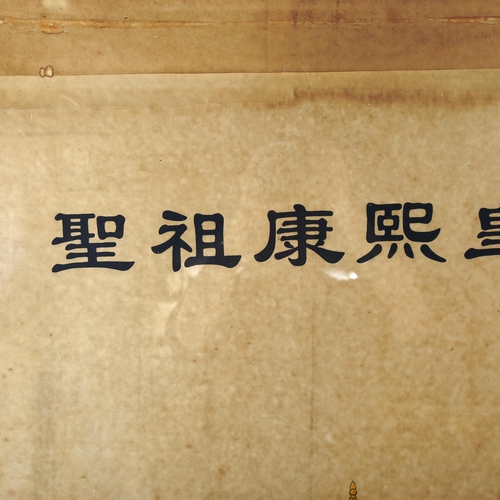 聖祖康熙皇